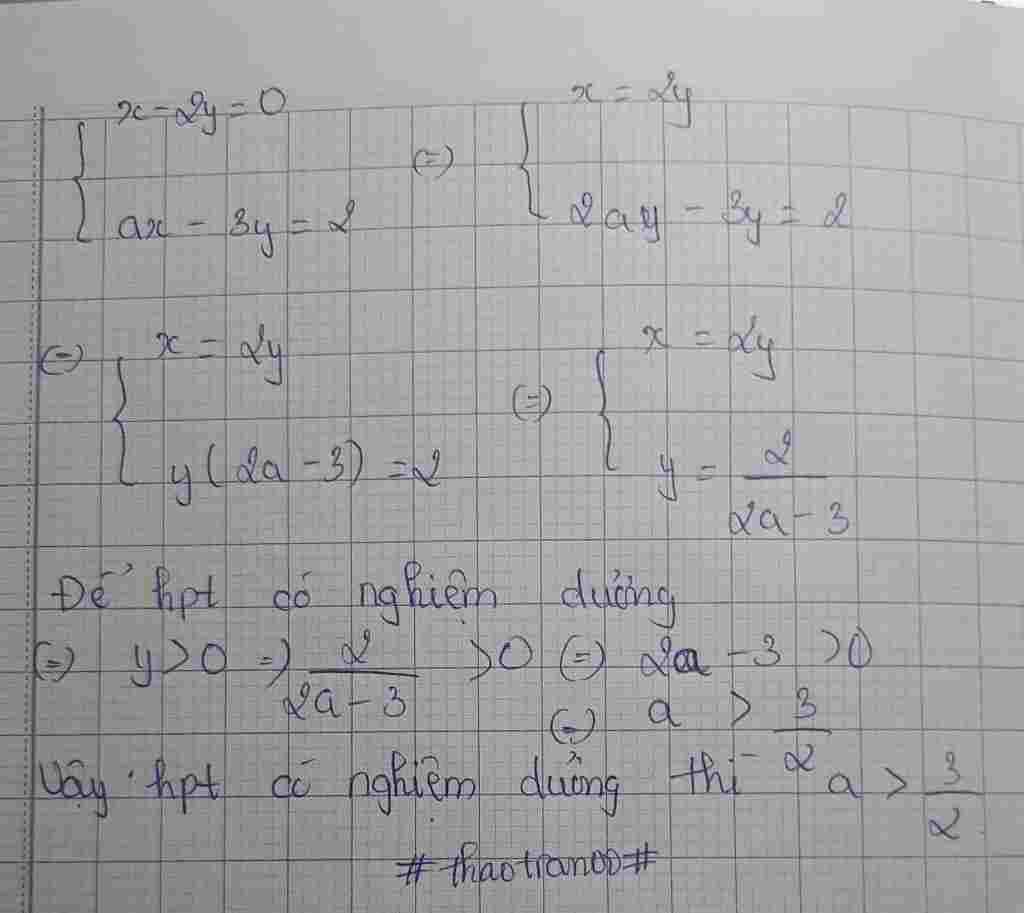 x - 2y = 0 (=) x = 2y
ax - 3y = 2 2ay - 3y = 2
(=) x = 2y (=) x = 2y
y(2a - 3) = 2 y = 2/(2a - 3)
Để hpt có nghiệm dương
(=) y > 0 => 2/(2a - 3) > 0 (=) 2a - 3 > 0
(=) a > 3/2
Vậy hpt có nghiệm dương thì a > 3/2
# thaotran00 #